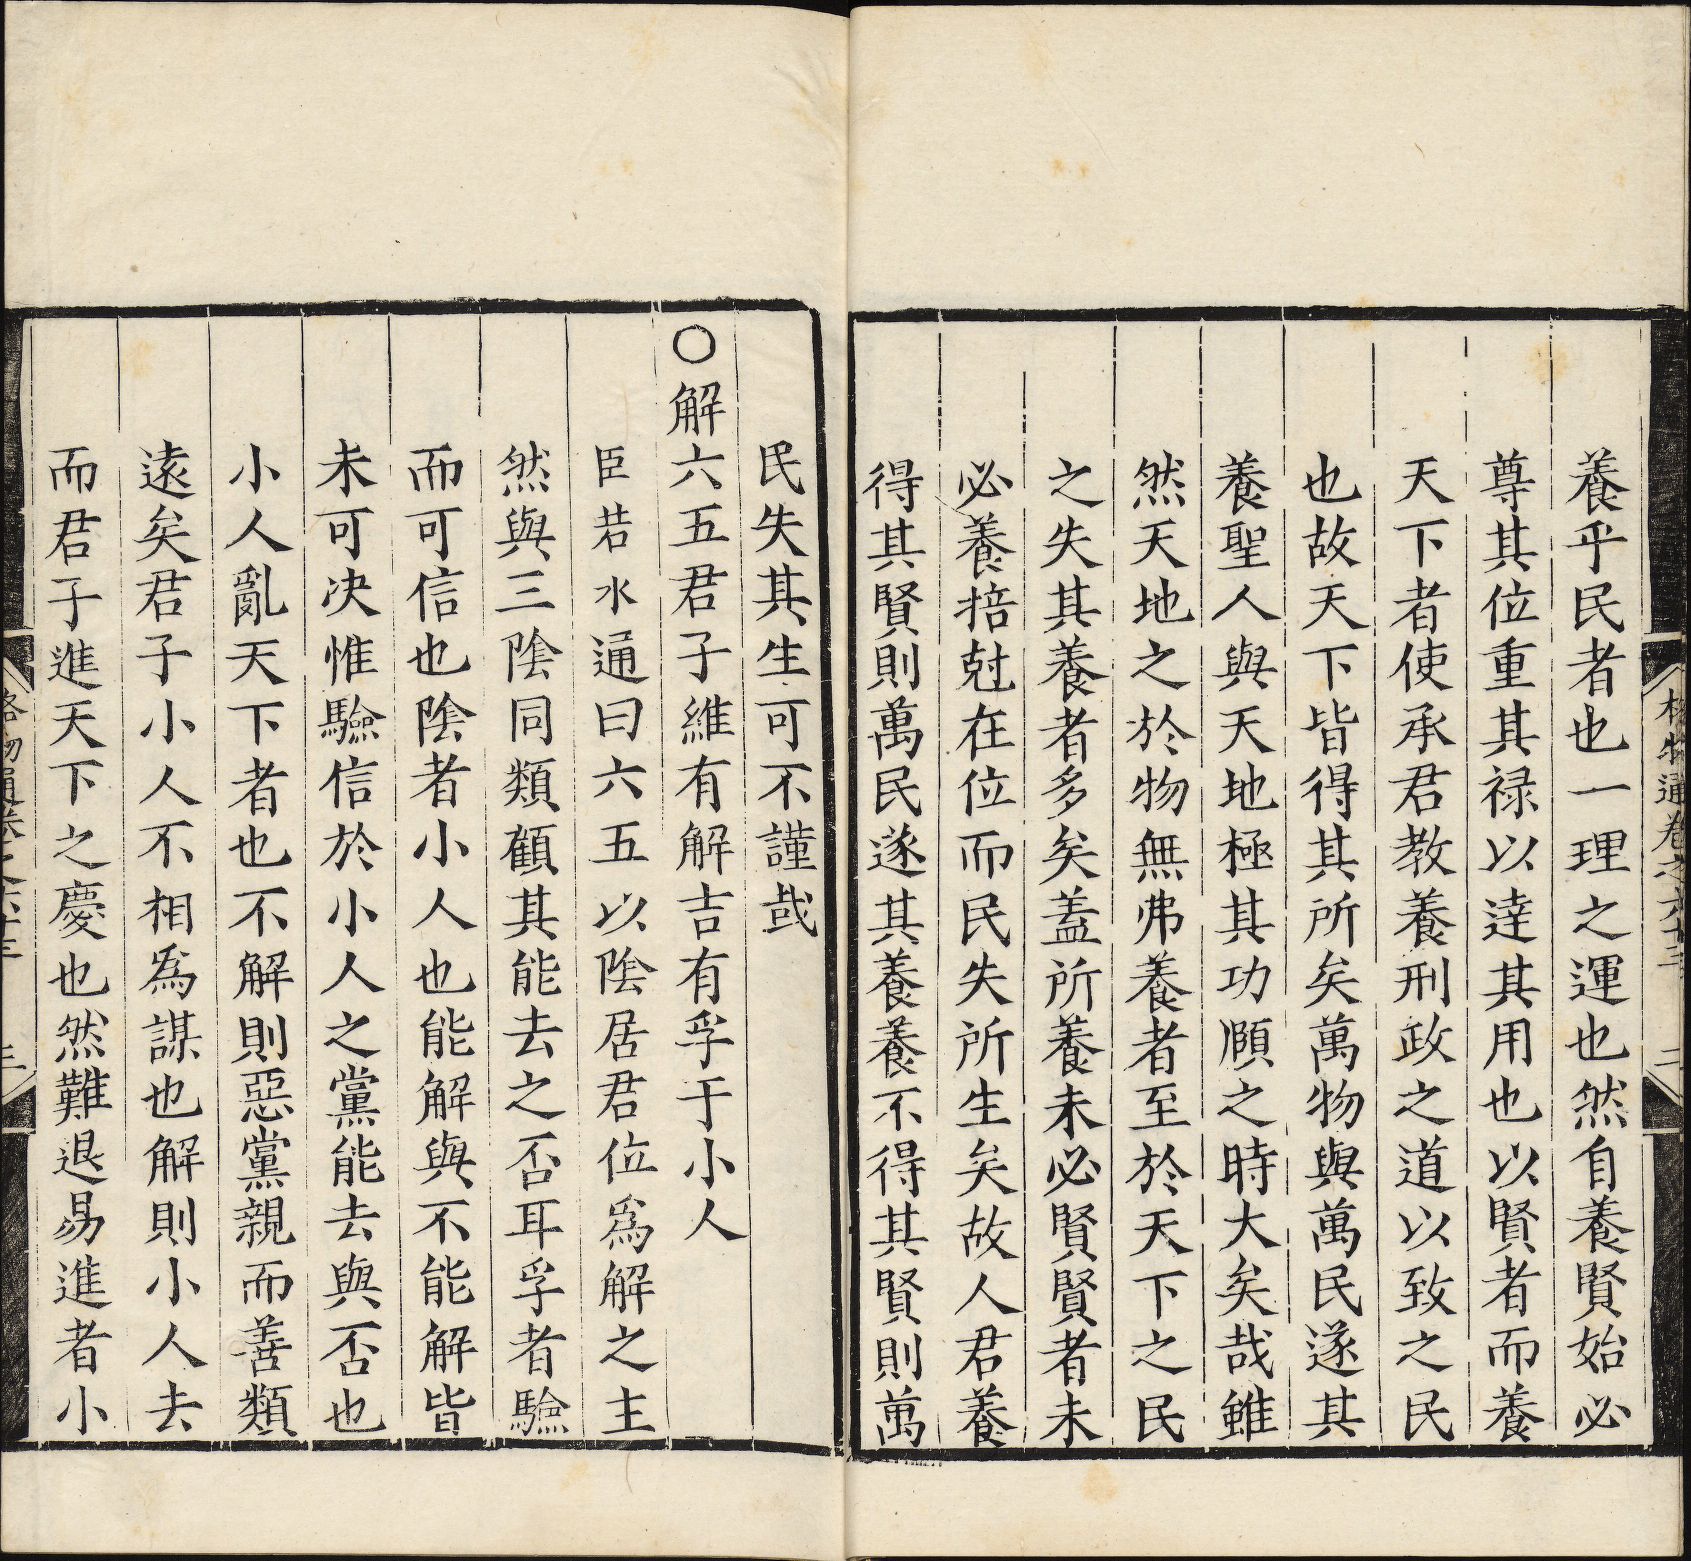 格物通卷之六十三 二
養乎民者也一理之運也然自養賢始必
尊其位重其禄以達其用也以賢者而養
天下者使承君教養刑政之道以致之民
也故天下皆得其所矣萬物與萬民遂其
養聖人與天地極其功頤之時大矣哉雖
然天地之於物無弗養者至於天下之民
之失其養者多矣蓋所養未必賢賢者未
必養掊尅在位而民失所生矣故人君養
得其賢則萬民遂其養養不得其賢則萬
民失其生可不謹哉
○解六五君子維有解吉有孚于小人
臣若水通曰六五以陰居君位爲解之主
然與三陰同類顧其能去之否耳孚者驗
而可信也陰者小人也能解與不能解皆
未可决惟驗信於小人之黨能去與否也
小人亂天下者也不解則惡黨親而善類
遠矣君子小人不相爲謀也解則小人去
而君子進天下之慶也然難退易進者小
格物通卷之六十三 三